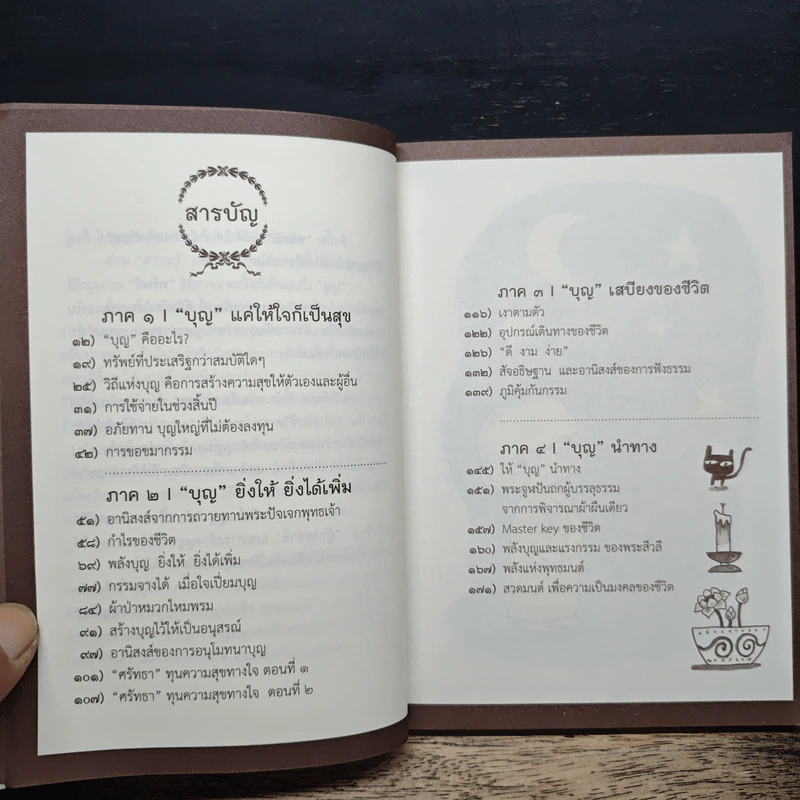 สารบัญ
ภาค ๑ | “บุญ” แค่ให้ใจก็เป็นสุข
๑๒) “บุญ” คืออะไร?
๑๙) ทรัพย์ที่ประเสริฐกว่าสมบัติใดๆ
๒๕) วิถีแห่งบุญ คือการสร้างความสุขให้ตัวเองและผู้อื่น
๓๑) การใช้จ่ายในช่วงสิ้นปี
๓๗) อภัยทาน บุญใหญ่ที่ไม่ต้องลงทุน
๔๒) การขอขมากรรม
ภาค ๒ | “บุญ” ยิ่งให้ ยิ่งได้เพิ่ม
๕๑) อานิสงส์จากการถวายทานพระปัจเจกพุทธเจ้า
๕๘) กำไรของชีวิต
๖๙) พลังบุญ ยิ่งให้ ยิ่งได้เพิ่ม
๗๗) กรรมจางได้ เมื่อใจเปี่ยมบุญ
๘๔) ผ้าป่าหมวกไหมพรม
๙๑) สร้างบุญไว้ให้เป็นอนุสรณ์
๙๗) อานิสงส์ของการอนุโมทนาบุญ
๑๐๑) “ศรัทธา” ทุนความสุขทางใจ ตอนที่ ๑
๑๐๗) “ศรัทธา” ทุนความสุขทางใจ ตอนที่ ๒
ภาค ๓ | “บุญ” เสบียงของชีวิต
๑๑๖) เงาตามตัว
๑๒๒) อุปกรณ์เดินทางของชีวิต
๑๒๖) “ดี งาม ง่าย”
๑๓๒) สัจอธิษฐาน และอานิสงส์ของการฟังธรรม
๑๓๙) ภูมิคุ้มกันกรรม
ภาค ๔ | “บุญ” นำทาง
๑๔๕) ให้ “บุญ” นำทาง
๑๕๑) พระจูฬปันถกผู้บรรลุธรรม
จากการพิจารณาผ้าผืนเดียว
๑๕๗) Master key ของชีวิต
๑๖๐) พลังบุญและแรงกรรม ของพระสีวลี
๑๖๗) พลังแห่งพุทธมนต์
๑๗๑) สวดมนต์ เพื่อความเป็นมงคลของชีวิต